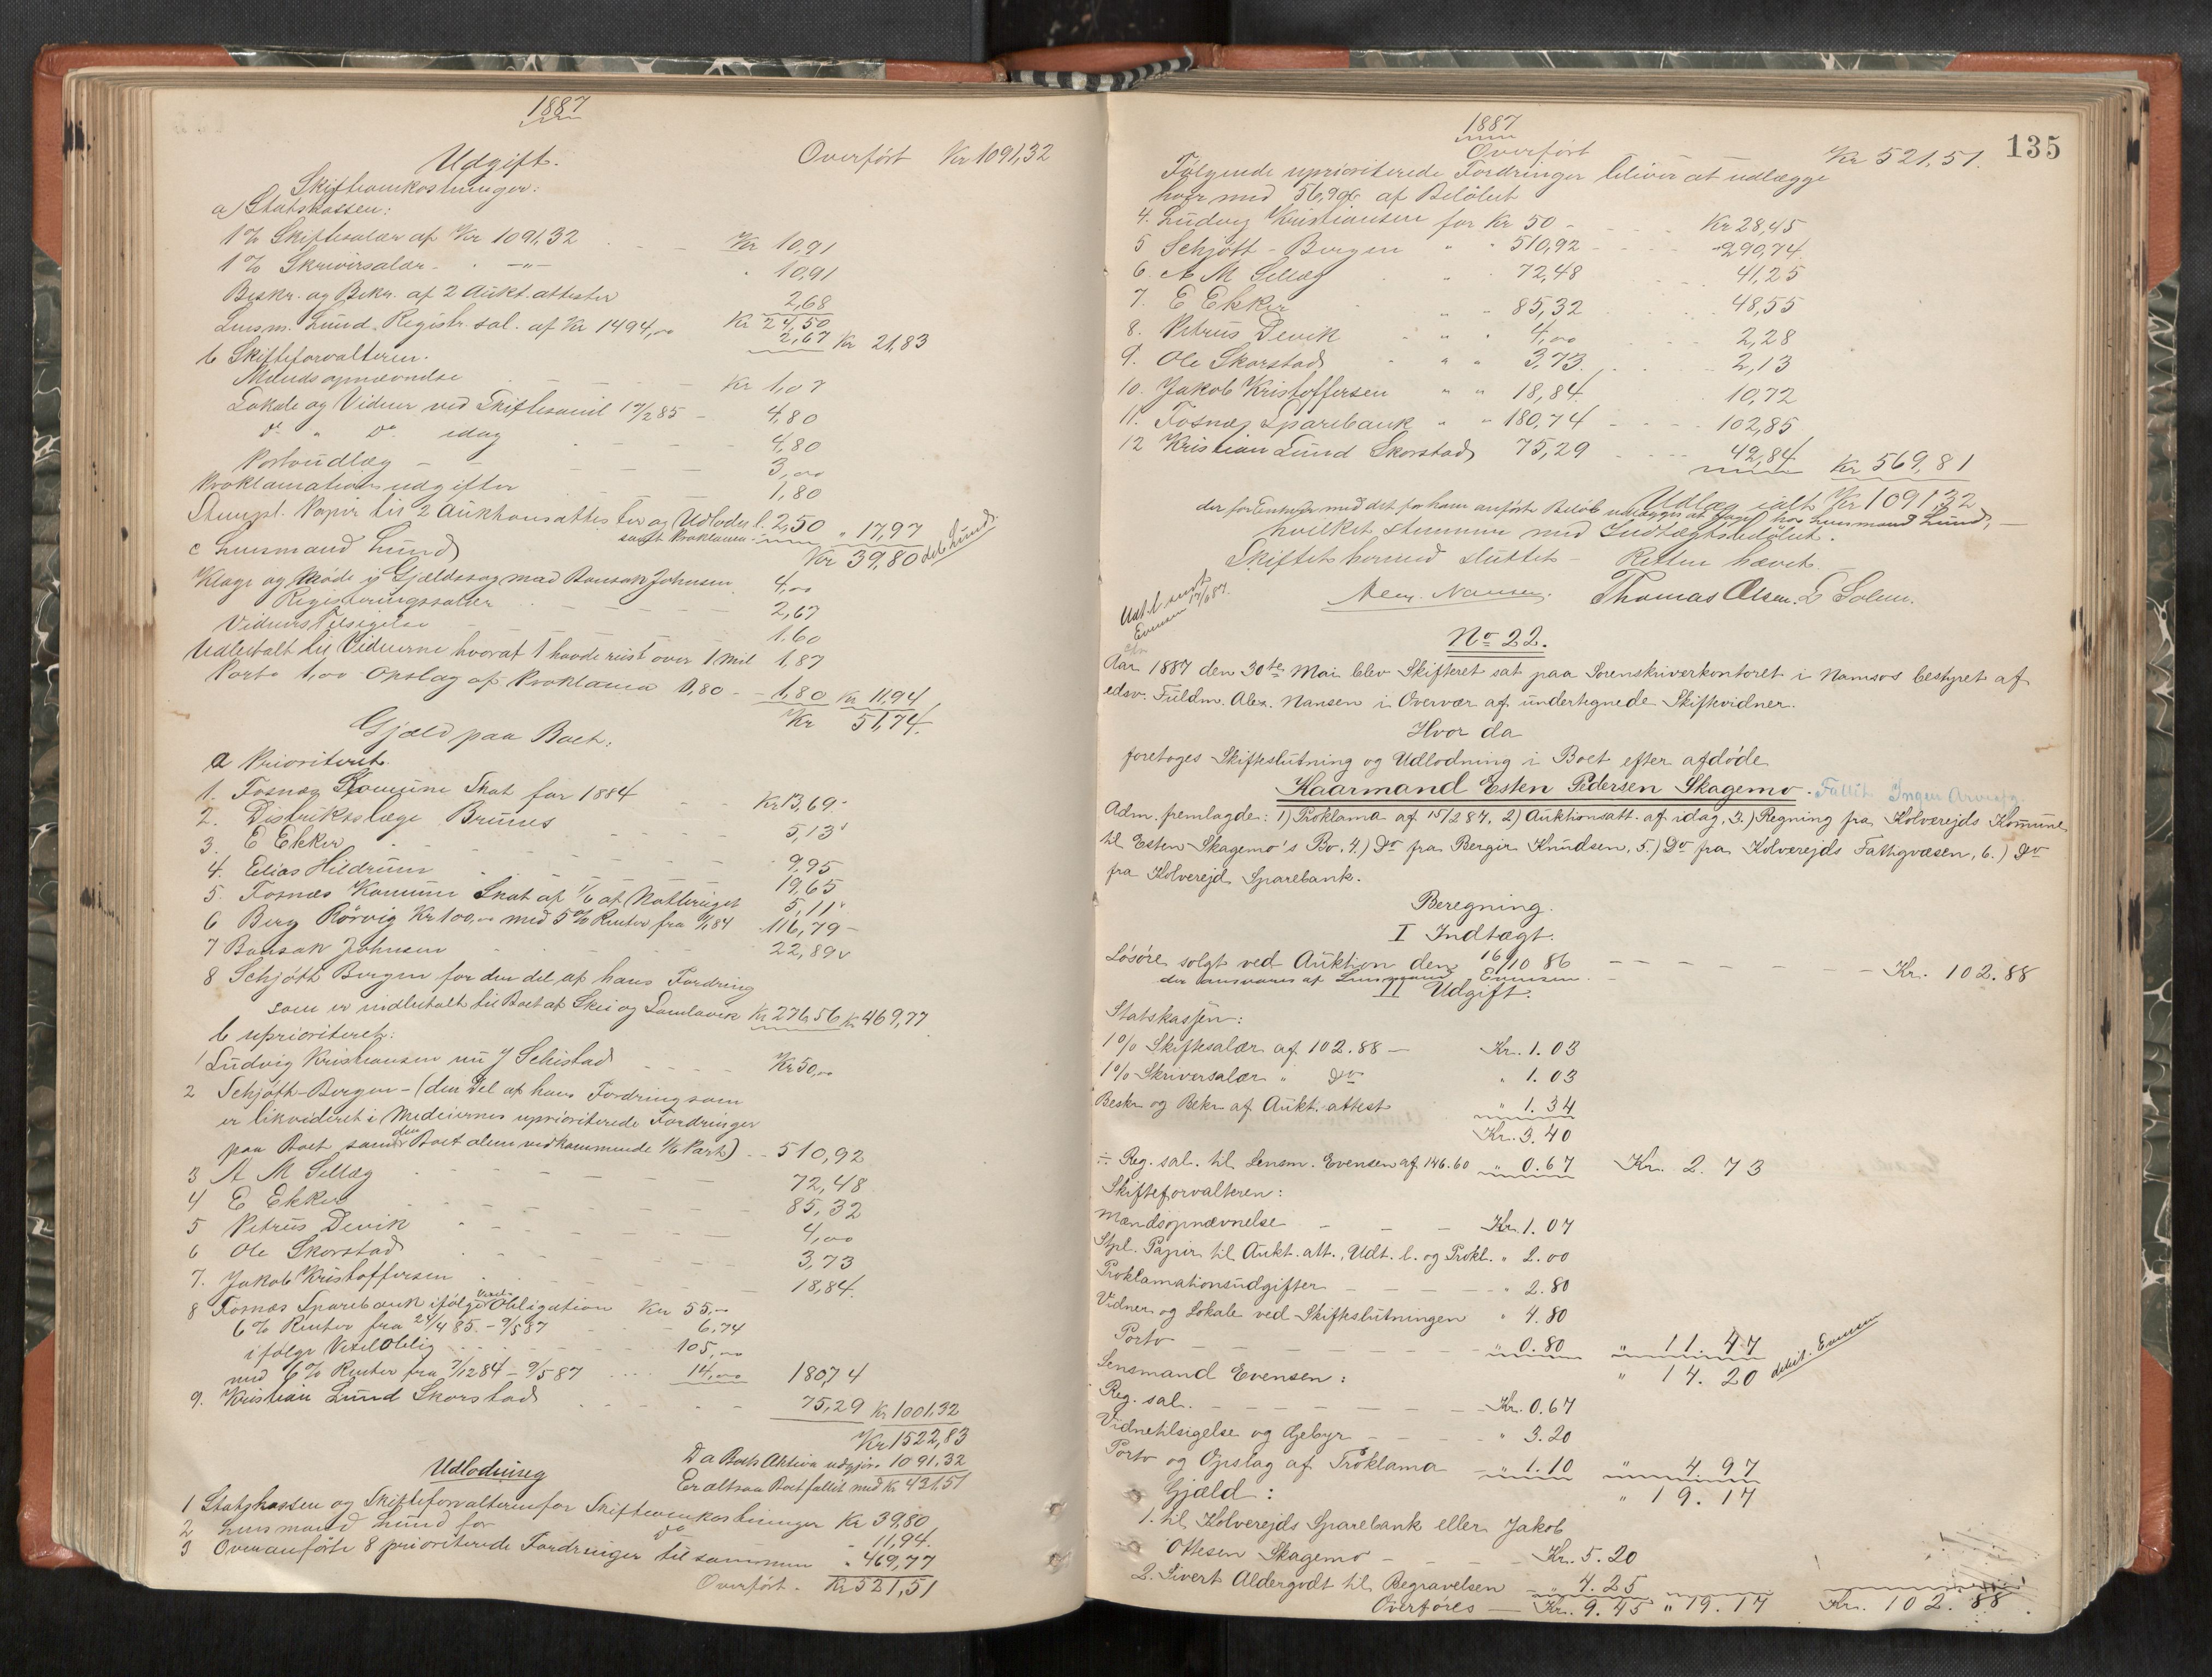 1887
Udgift. Overført Kr 1091,32
Skifteomkostninger:
a) Statskassen:
1% Skiftesalær af Kr 1091,32 Kr 10,91
1% Skriversalær - " - 10,91
Beskr. og Bekr. af 2 Aukt. attester 2,68
Kr 24,50
Lensm. Lund Registr. sal. af Kr 1494,00 2,67 Kr 21,83
b Skifteforvalteren.
Mændsopnævnelse Kr 1,07
Lokale og Vidner ved Skiftesaml 17/2 85 - 4,80
do " Do idag 4,80
Portoudlæg 3,00
Proklamationsudgifter 1,80
Stempl. Papir til 2 Auktionsattester og Udlodn l. 2,50 " 17,97
samt Proklama
Kr 39,80 deb Lund.
c Lensmand Lund
Klage og Møde i Gjældssag mod Johnsen 4,00
Registreringssalær 2,67
Vidners Tilsigelse 1.60
Udbetalt til Vidnerne hvoraf 1 havde reist over 1 Mil 1,87
Porto 1,00 Opslag af Proklama 0,80 - 1,80 Kr 11,94
Kr 51,74.
Gjæld paa Boet:
a Prioriteret.
1. Fosnæs Komune Skat for 1884 Kr 13,69
2. Distriktslæge Bruuns 5,13
3. E Ekker 9,95
4. Elias Hildrum 19,65
5. Fosnæs Komune Skat af 1/6 af Notbruget 5,11
6 Berg Rørvig Kr 100,00 med 5% Renter fra 1/1 84 116,79 -
7 Johnsen 22,89
8 Schjøtt Bergen for den del af hans Fordring
som er indbetalt til Boet af Skei og Kr 276,56 Kr 469,77
b uprioriteret:
1 Ludvig Kristiansen nu J Kr 50,00
2 Schjøtt-Bergen - (den Del af hans Fordring som
er likvideret i Medeiernes uprioriterede Fordringer
paa Boet samt den Boet alene vedkommende 1/6 Part) 510,92
3 A M Sellæg 72,48
4 E Ekker 85,32
5 Petrus Devik 4,00
6 Ole Skorstad 3,73
7. Jakob Kristoffersen 18,84.
8 Fosnæs Sparebank ifølge Obligation Kr 55,00
6% Renter fra 24/4 85 - 9/5 87 6,74
ifølge Vexeloblig 105,00
med 6% Renter fra 7/12 84 - 9/5 87 14,00 180,74
9. Kristian Lund Skorstad 75,29 Kr 1001,32
Kr 1522,83
Da Boets Aktiva udgjør 1091,32
Er altsaa Boet fallit med Kr 431,51
Udlodning
1 Statskassen og Skifteforvalteren for Skifteomkostninger Kr 39,80
2 Lensmand Lund for do - 11,94.
3 Ovenanførte 8 prioriterede Fordringer tilsammen " 469,77
Overført. Kr 521,51
1887
135
Overført Kr 521,51.
Følgende uprioriterede Fordringer bliver at udlægge
hver med 56,9% af Beløbet
4. Ludvig Kristiansen for Kr 50 - Kr 28,45
5 Schjøtt - Bergen " " 510,92 - 290,74
6. A M Sellæg " " 72,48 41,25
7. E Ekker " " 85,32 48,55
8. Petrus Devik " " 4,00 2,28
9. Ole Skorstad " " 3,73 2,13
10. Jakob Kristoffersen " " 18,84 10,72
11. Fosnæs Sparebank " " 180,74 102,85
12 Kristian Lund Skorstad 75,29 42,84 Kr 569,81
Udlæg ialt Kr 1091,32
der for Enhver med det for ham anførte Beløb udlægges at hos Lensmand Lund, -
hvilket stemmer med Indtægtsbeløbet.
Skiftet hermed sluttet - Retten hævet.
Udl. sendt Evensen 17/6 87.
Alex. Nansen. Thomas Olsen. L Solem.
No 22.
Aar 1887 den 30te Mai blev Skifteret sat paa Sorenskriverkontoret i Namsos bestyret af
edsv. Fuldm. Alex. Nansen i Overvær af undertegnede Skiftevidner.
Hvor da
foretoges Skifteslutning og Udlodning i Boet efter afdøde
Kaarmand Esten Pedersen Skagemo. Fallit Ingen Arvefg.
Adm. fremlagde: 1) Proklama af 15/2 87, 2) Auktionsatt. af idag, 3.) Regning fra Kolvereids Komune
til Esten Skagemo's Bo, 4.) Do fra Bergir Knudsen, 5.) Do fra Kolvereids Fattigvæsen, 6.) Do
fra Kolvereid Sparebank.
Beregning.
I Indtægt.
Løsøre solgt ved Auktion den 16/10 86 - - - Kr. 102.88
der ansvares af Lensmand Evensen.
II Udgift.
Statskassen:
1% Skiftesalær af 102.88 - Kr. 1.03
1% Skriversalær " Do " 1.03
Beskr og Bekr af Aukt. attest " 1.34
Kr. 3.40
÷ Reg. sal. til Lensm. Evensen af 146.60 " 0.67 Kr. 2.73
Skifteforvalteren:
Mændsopnævnelse - - - Kr. 1.07
Stpl. Papir til Aukt. att., Udt. l. og Prokl. " 2.00
Proklamationsudgifter - - - " 2.80
Vidner og Lokale ved Skifteslutningen " 4.80
Porto " 0.80 " 11.47
" 14.20 debit. Evensen
Lensmand Evensen:
Reg. sal. - - - Kr. 0.67
Vidnetilsigelse og Gebyr - - - " 3.20
Porto og Opslag af Proklama " 1.10 " 4.97
" 19.17
Gjæld:
1. til Kolvereids Sparebank eller Jakob
Ottesen Skagemo - - - Kr. 5.20
2. Sivert Aldergodt til Begravelsen " 4.25
Overføres - Kr. 9.45 " 19.17 Kr. 102.88